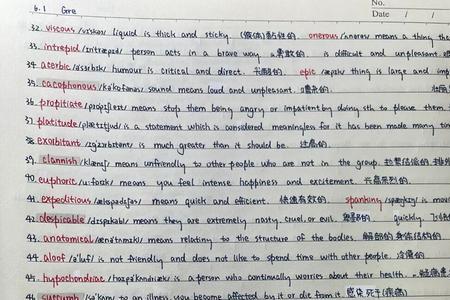 6.1 Gre
No.
Date / /
32. viscous /vɪskəs/ liquid is thick and sticky. (液体)黏性的. onerous /ɒnərəs/ means a thing the
33. intrepid /ɪntrɛpɪd/ person acts in a brave way. 勇敢的. is difficult and unpleasant.
34. acerbic /əsɜrbɪk/ humour is critical and direct. epic /ɛpɪk/ thing is large and imp
35. cacophonous /kəkɒfənəs/ sound means loud and unpleasant. 嘈杂的.
36. propitiate /prəpɪʃieɪt/ means stop them being angry or impatient by doing sth to please them.
37. platitude /plætɪtjud/ is a statement which is considered meaningless for it has been made many tim
38. exorbitant /ɪgzɔrbɪtənt/ is much greater than it should be. 过高的.
39. clannish /klænɪʃ/ means unfriendly to other people who are not in the group.
40. euphoric /uːfɒrɪk/ means you feel intense happiness and excitement.
41. expeditious /ɛkspədɪʃəs/ means quick and efficient. 快速有效的. spanking /spæŋkɪŋ/ is movi
42. despicable /dɪspɪkəbl/ means they are extremely nasty, cruel, or evil. 卑鄙的. quickly.
43. anatomical /ænətɒmɪkl/ means relating to the structure of the bodies. 解剖的身体结构的.
44. aloof /əluf/ is not friendly and does not like to spend time with other people. 冷漠的.
45. hypochondriac /haɪpəkɒndriæk/ is a person who continually worries about their health.
46. succumb /səkʌm/ to an illness, you become affected by it or die from it. 感染 死于(疾病)